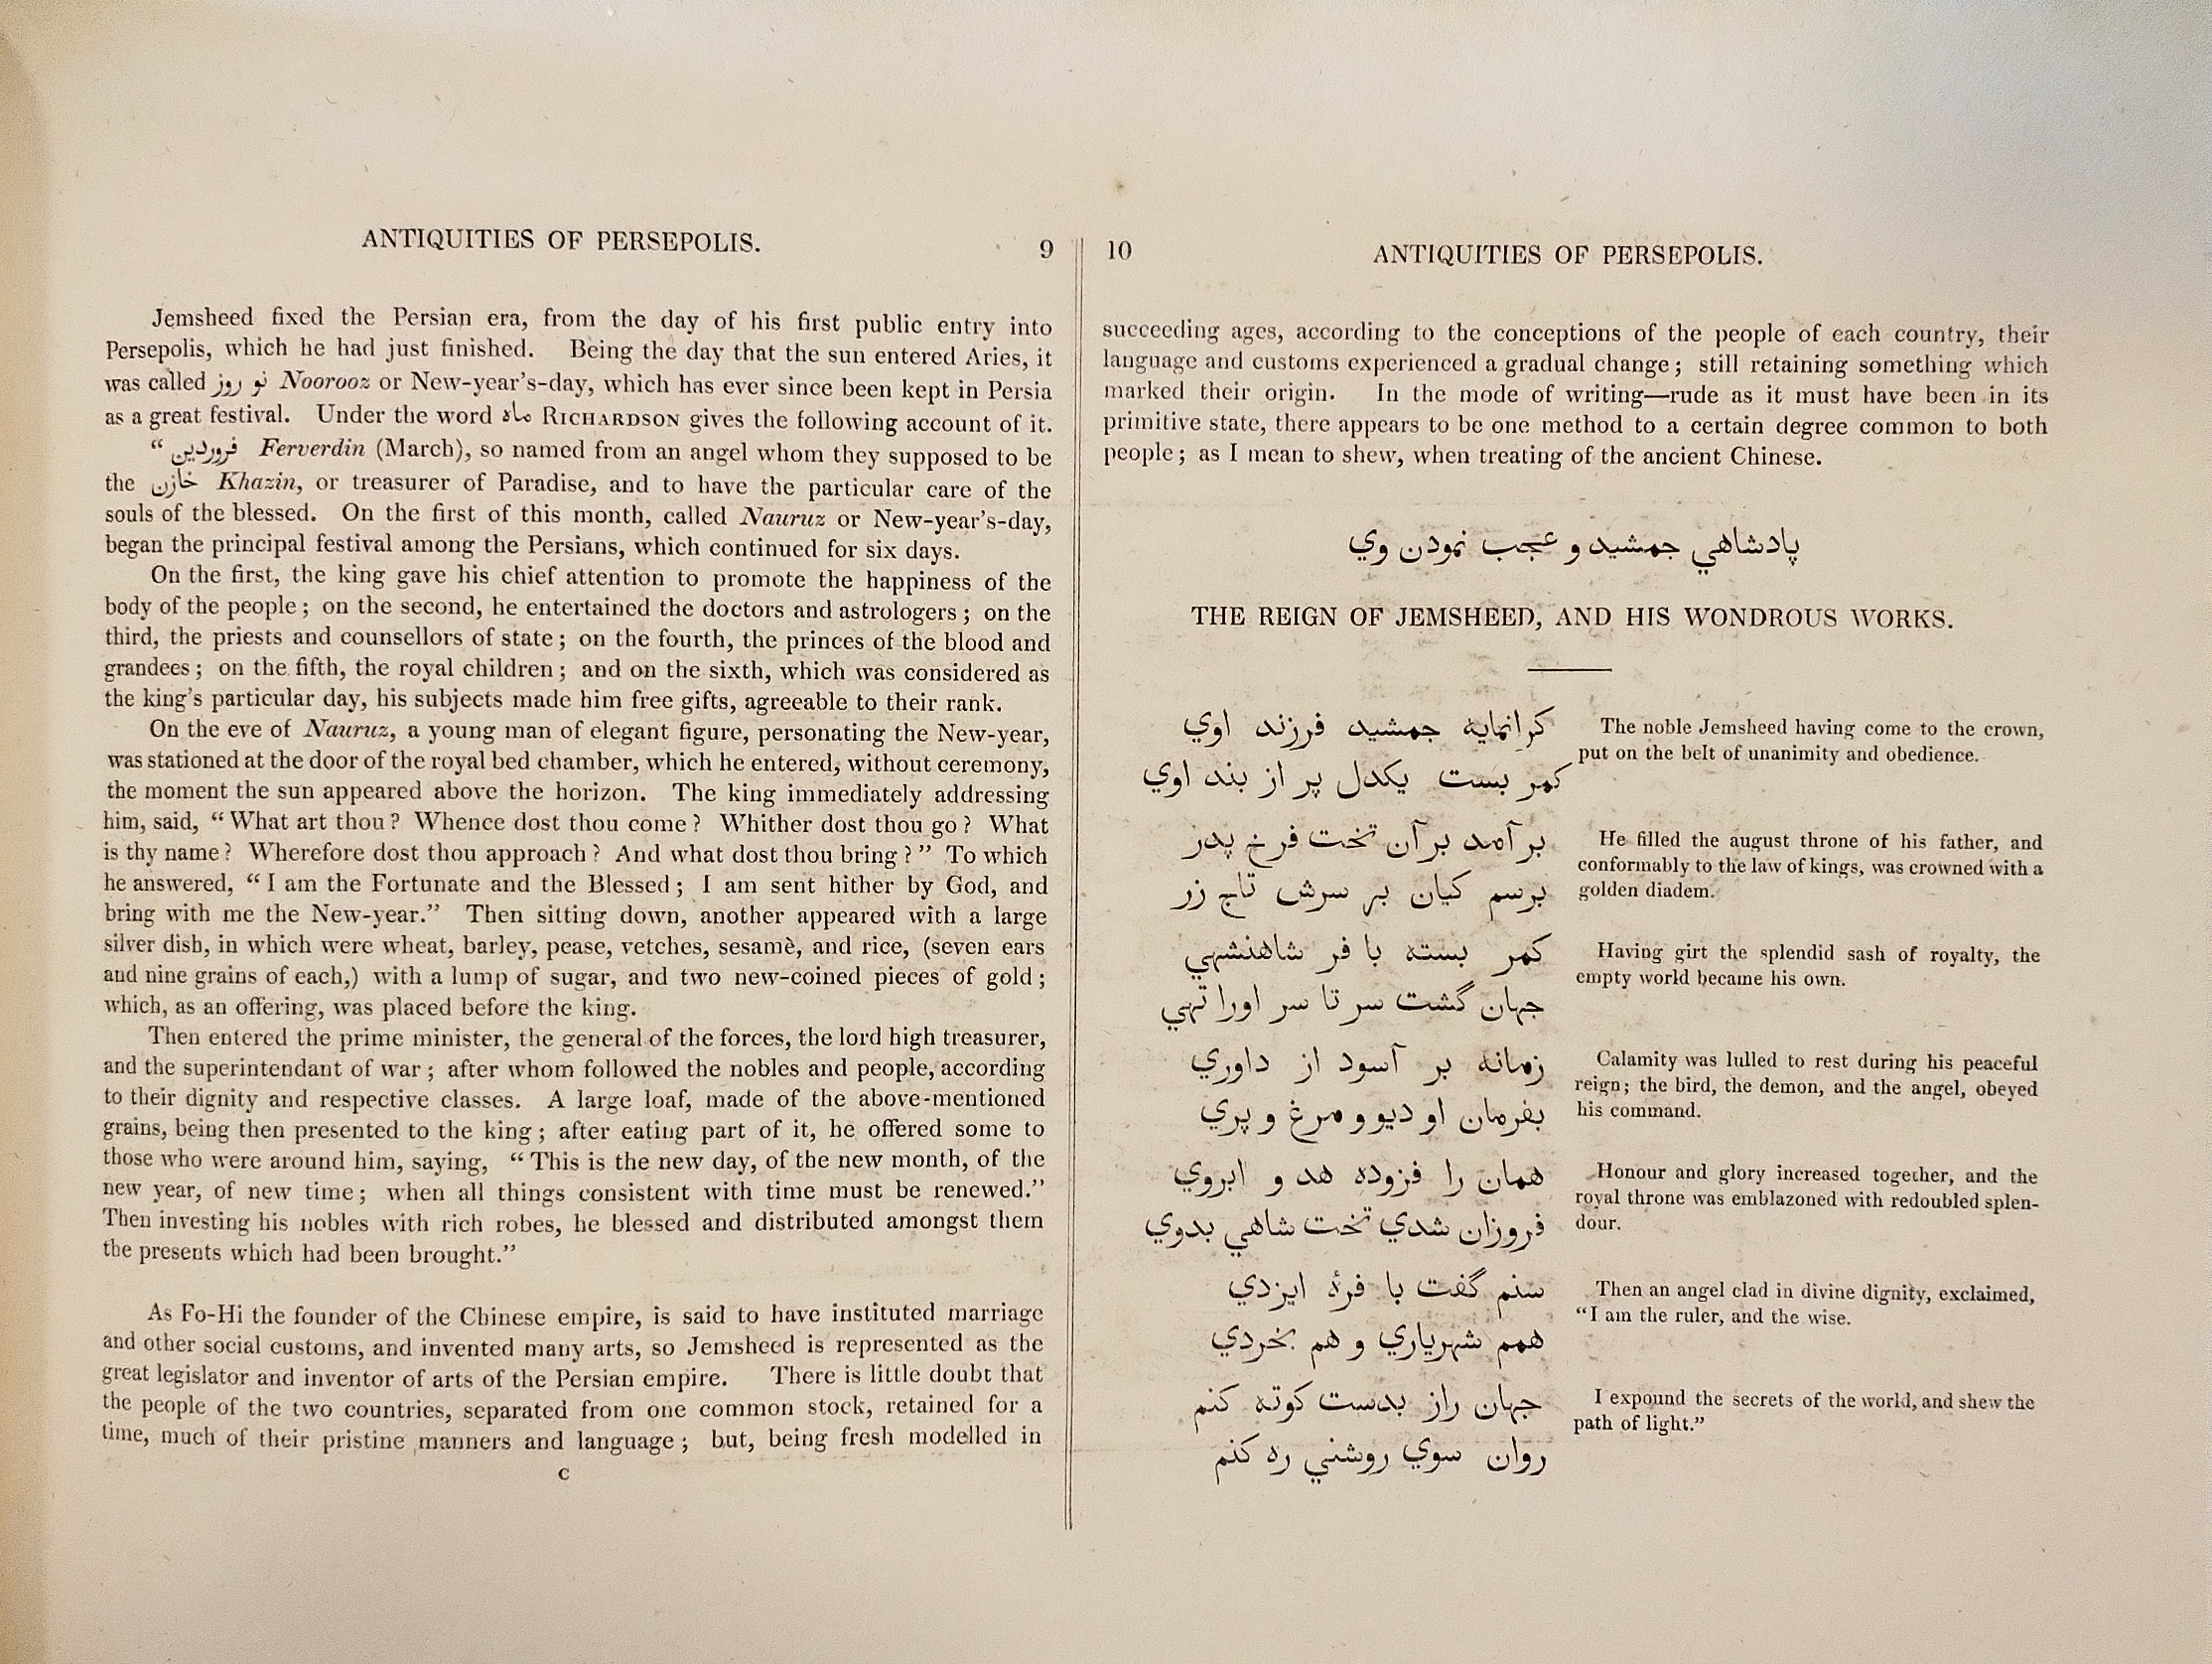 ANTIQUITIES OF PERSEPOLIS. 9
Jemsheed fixed the Persian era, from the day of his first public entry into
Persepolis, which he had just finished. Being the day that the sun entered Aries, it
was called نو روز Noorooz or New-year's-day, which has ever since been kept in Persia
as a great festival. Under the word ماه RICHARDSON gives the following account of it.
“ فروردين Ferverdin (March), so named from an angel whom they supposed to be
the خازن Khazin, or treasurer of Paradise, and to have the particular care of the
souls of the blessed. On the first of this month, called Nauruz or New-year's-day,
began the principal festival among the Persians, which continued for six days.
On the first, the king gave his chief attention to promote the happiness of the
body of the people; on the second, he entertained the doctors and astrologers; on the
third, the priests and counsellors of state; on the fourth, the princes of the blood and
grandees; on the fifth, the royal children; and on the sixth, which was considered as
the king's particular day, his subjects made him free gifts, agreeable to their rank.
On the eve of Nauruz, a young man of elegant figure, personating the New-year,
was stationed at the door of the royal bed chamber, which he entered, without ceremony,
the moment the sun appeared above the horizon. The king immediately addressing
him, said, “What art thou? Whence dost thou come? Whither dost thou go? What
is thy name? Wherefore dost thou approach? And what dost thou bring?” To which
he answered, “I am the Fortunate and the Blessed; I am sent hither by God, and
bring with me the New-year.” Then sitting down, another appeared with a large
silver dish, in which were wheat, barley, pease, vetches, sesamè, and rice, (seven ears
and nine grains of each,) with a lump of sugar, and two new-coined pieces of gold;
which, as an offering, was placed before the king.
Then entered the prime minister, the general of the forces, the lord high treasurer,
and the superintendant of war; after whom followed the nobles and people, according
to their dignity and respective classes. A large loaf, made of the above-mentioned
grains, being then presented to the king; after eating part of it, he offered some to
those who were around him, saying, “This is the new day, of the new month, of the
new year, of new time; when all things consistent with time must be renewed.”
Then investing his nobles with rich robes, he blessed and distributed amongst them
the presents which had been brought.”
As Fo-Hi the founder of the Chinese empire, is said to have instituted marriage
and other social customs, and invented many arts, so Jemsheed is represented as the
great legislator and inventor of arts of the Persian empire. There is little doubt that
the people of the two countries, separated from one common stock, retained for a
time, much of their pristine manners and language; but, being fresh modelled in
C
10 ANTIQUITIES OF PERSEPOLIS.
succeeding ages, according to the conceptions of the people of each country, their
language and customs experienced a gradual change; still retaining something which
marked their origin. In the mode of writing—rude as it must have been in its
primitive state, there appears to be one method to a certain degree common to both
people; as I mean to shew, when treating of the ancient Chinese.
پادشاهي جمشيد و عجب نمودن وي
THE REIGN OF JEMSHEED, AND HIS WONDROUS WORKS.
كرانمايه جمشيد فرزند اوي
كمر بست يكدل پر از بند اوي
The noble Jemsheed having come to the crown,
put on the belt of unanimity and obedience.
بر آمد بر آن تخت فرخ پدر
برسم كيان بر سرش تاج زر
He filled the august throne of his father, and
conformably to the law of kings, was crowned with a
golden diadem.
كمر بسته با فر شاهنشهي
جهان گشت سر تا سر اورا تهي
Having girt the splendid sash of royalty, the
empty world became his own.
زمانه بر آسود از داوري
بفرمان او ديو و مرغ و پري
Calamity was lulled to rest during his peaceful
reign; the bird, the demon, and the angel, obeyed
his command.
همان را فزوده هد و ابروي
فروزان شدي تخت شاهي بدوي
Honour and glory increased together, and the
royal throne was emblazoned with redoubled splen-
dour.
سنم گفت با فرهٔ ايزدي
همم شهرياري و هم بخردي
Then an angel clad in divine dignity, exclaimed,
“I am the ruler, and the wise.
جهان راز بدست كوته كنم
روان سوي روشني ره كنم
I expound the secrets of the world, and shew the
path of light.”